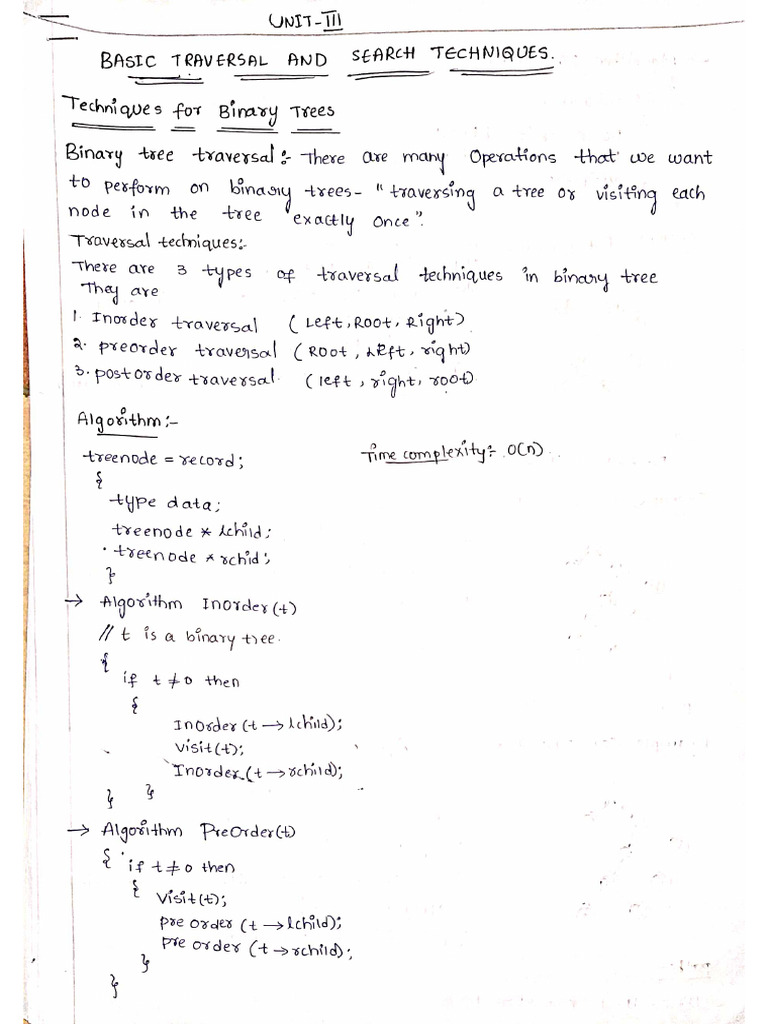 UNIT-III
BASIC TRAVERSAL AND SEARCH TECHNIQUES.
Techniques for Binary Trees
Binary tree traversal:- There are many Operations that we want
to perform on binary trees- "traversing a tree or visiting each
node in the tree "exactly once".
Traversal techniques:-
There are 3 types of traversal techniques in binary tree
They are
1. Inorder traversal (Left, Root, Right)
2. preorder traversal (Root, Left, right)
3. postorder traversal (left, right, root)
Algorithm:-
Time complexity:- O(n)
treenode = record;
{
type data;
treenode * lchild;
treenode * rchid;
}
→ Algorithm Inorder(t)
// t is a binary tree.
{
if t ≠ 0 then
{
Inorder(t → lchild);
Visit(t);
Inorder(t → rchild);
} }
→ Algorithm PreOrder(t)
{ if t ≠ 0 then
{ Visit(t);
pre order (t → lchild);
pre order (t → rchild);
}
}